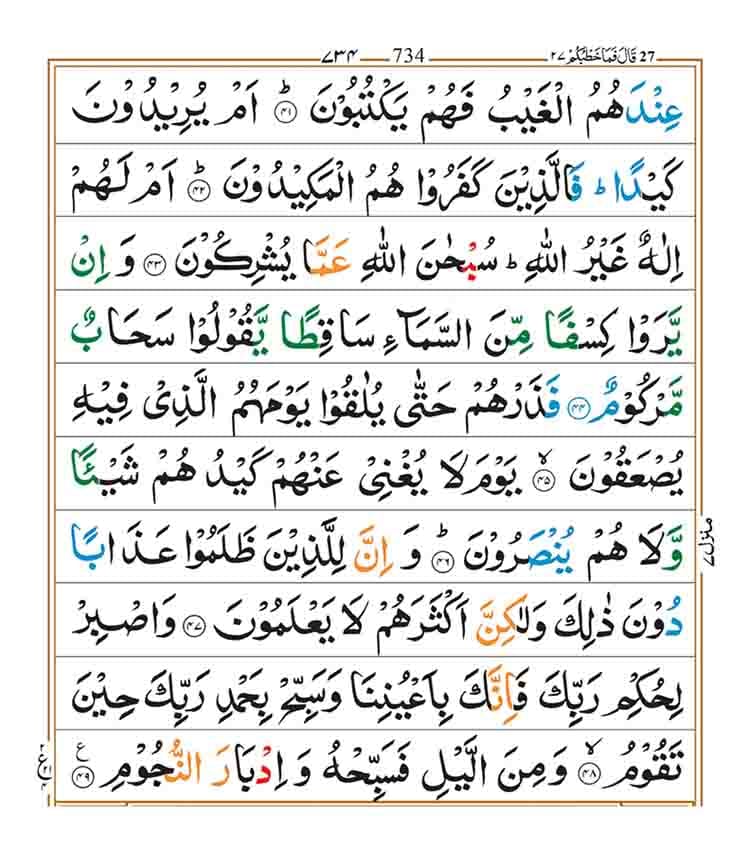 27 قَالَ فَمَا خَطْبُكُمْ ٢٧ 734 ٧٣۴
عِنْدَهُمُ الْغَيْبُ فَهُمْ يَكْتُبُوْنَ ؕ﴿۴۱﴾ اَمْ يُرِيْدُوْنَ
كَيْدًا ؕ فَالَّذِيْنَ كَفَرُوْا هُمُ الْمَكِيْدُوْنَ ؕ﴿۴۲﴾ اَمْ لَهُمْ
اِلٰهٌ غَيْرُ اللّٰهِ ؕ سُبْحٰنَ اللّٰهِ عَمَّا يُشْرِكُوْنَ ﴿۴۳﴾ وَ اِنْ
يَّرَوْا كِسْفًا مِّنَ السَّمَآءِ سَاقِطًا يَّقُوْلُوْا سَحَابٌ
مَّرْكُوْمٌ ﴿۴۴﴾ فَذَرْهُمْ حَتّٰى يُلٰقُوْا يَوْمَهُمُ الَّذِىْ فِيْهِ
يُصْعَقُوْنَ ۙ﴿۴۵﴾ يَوْمَ لَا يُغْنِىْ عَنْهُمْ كَيْدُهُمْ شَيْـًٔا
وَّلَا هُمْ يُنْصَرُوْنَ ؕ﴿۴۶﴾ وَ اِنَّ لِلَّذِيْنَ ظَلَمُوْا عَذَابًا
دُوْنَ ذٰلِكَ وَلٰكِنَّ اَكْثَرَهُمْ لَا يَعْلَمُوْنَ ﴿۴۷﴾ وَاصْبِرْ
لِحُكْمِ رَبِّكَ فَاِنَّكَ بِاَعْيُنِنَا وَسَبِّحْ بِحَمْدِ رَبِّكَ حِيْنَ
تَقُوْمُ ۙ﴿۴۸﴾ وَمِنَ الَّيْلِ فَسَبِّحْهُ وَ اِدْبَارَ النُّجُوْمِ ﴿۴۹﴾ ع
منزل ٧